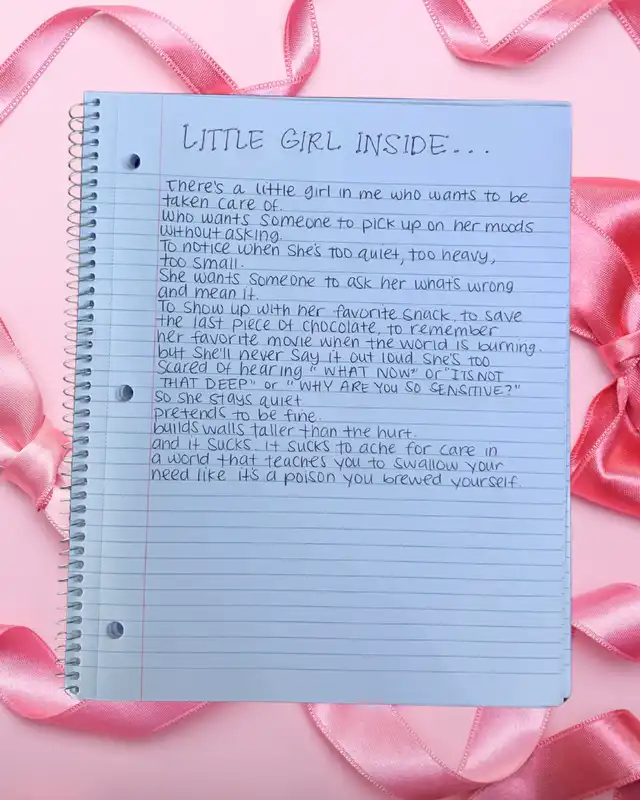 LITTLE GIRL INSIDE...
There's a little girl in me who wants to be
taken care of.
Who wants someone to pick up on her moods
without asking.
To notice when she's too quiet, too heavy,
too small.
She wants someone to ask her what's wrong
and mean it.
To show up with her favorite snack, to save
the last piece of chocolate, to remember
her favorite movie when the world is burning.
but she'll never say it out loud. She's too
scared of hearing "WHAT NOW" or "ITS NOT
THAT DEEP" or "WHY ARE YOU SO SENSITIVE?"
so she stays quiet
pretends to be fine.
builds walls taller than the hurt.
and it sucks. it sucks to ache for care in
a world that teaches you to swallow your
need like it's a poison you brewed yourself.